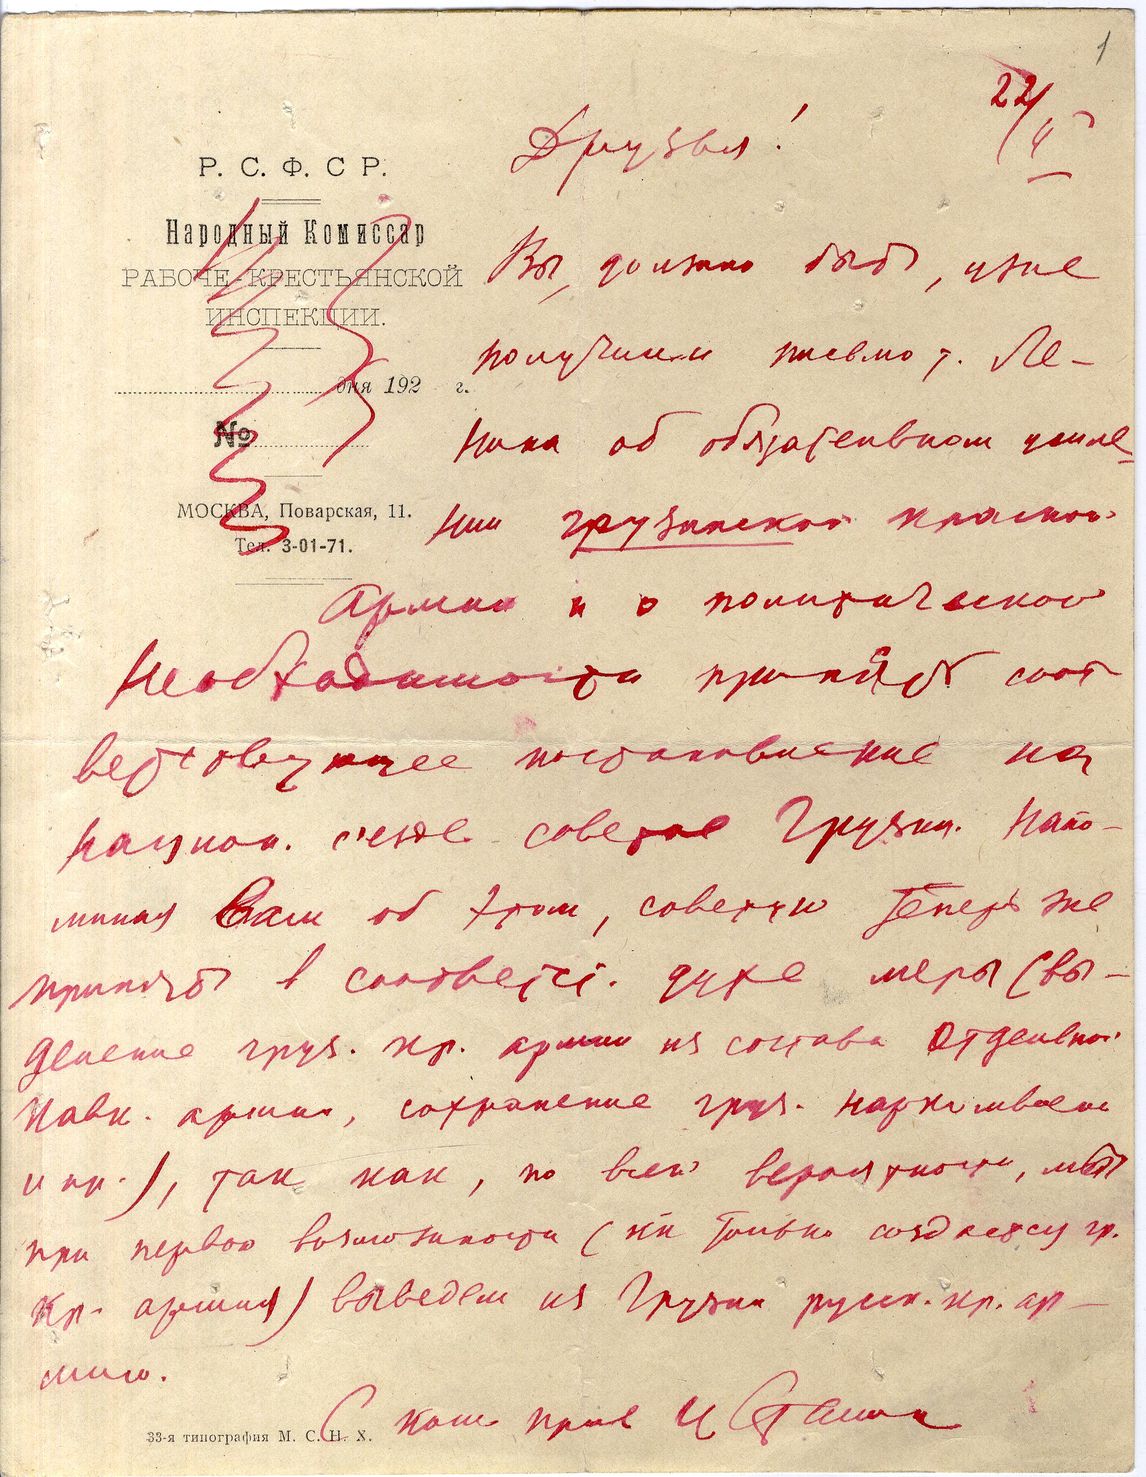 1
22/II
Друзья!
Р. С. Ф. С Р.
Народный Комиссар
РАБОЧЕ-КРЕСТЬЯНСКОЙ
ИНСПЕКЦИИ.
дня 192 г.
№
МОСКВА, Поварская, 11.
Тел. 3-01-71.
Вы, должно быть, уже
получили письмо т. Ле-
нина об обязательном усиле-
нии грузинской красной
Армии и о политической
необходимости принять соот
ветствующее постановление на
национ. с'езде советов Грузии. Напо-
миная Вам об этом, советую теперь же
принять в соответст. духе меры (вы-
деление груз. кр. армии из состава Отдельной
Кавк. армии, сохранение груз. наркомвоена
и пр.), так как, по всей вероятности, мы
при первой возможности (как только создается гр.
кр. армия) выведем из Грузии русск. кр. ар-
мию.
С ком. прив И Сталин
33-я типография М. С. Н. Х.